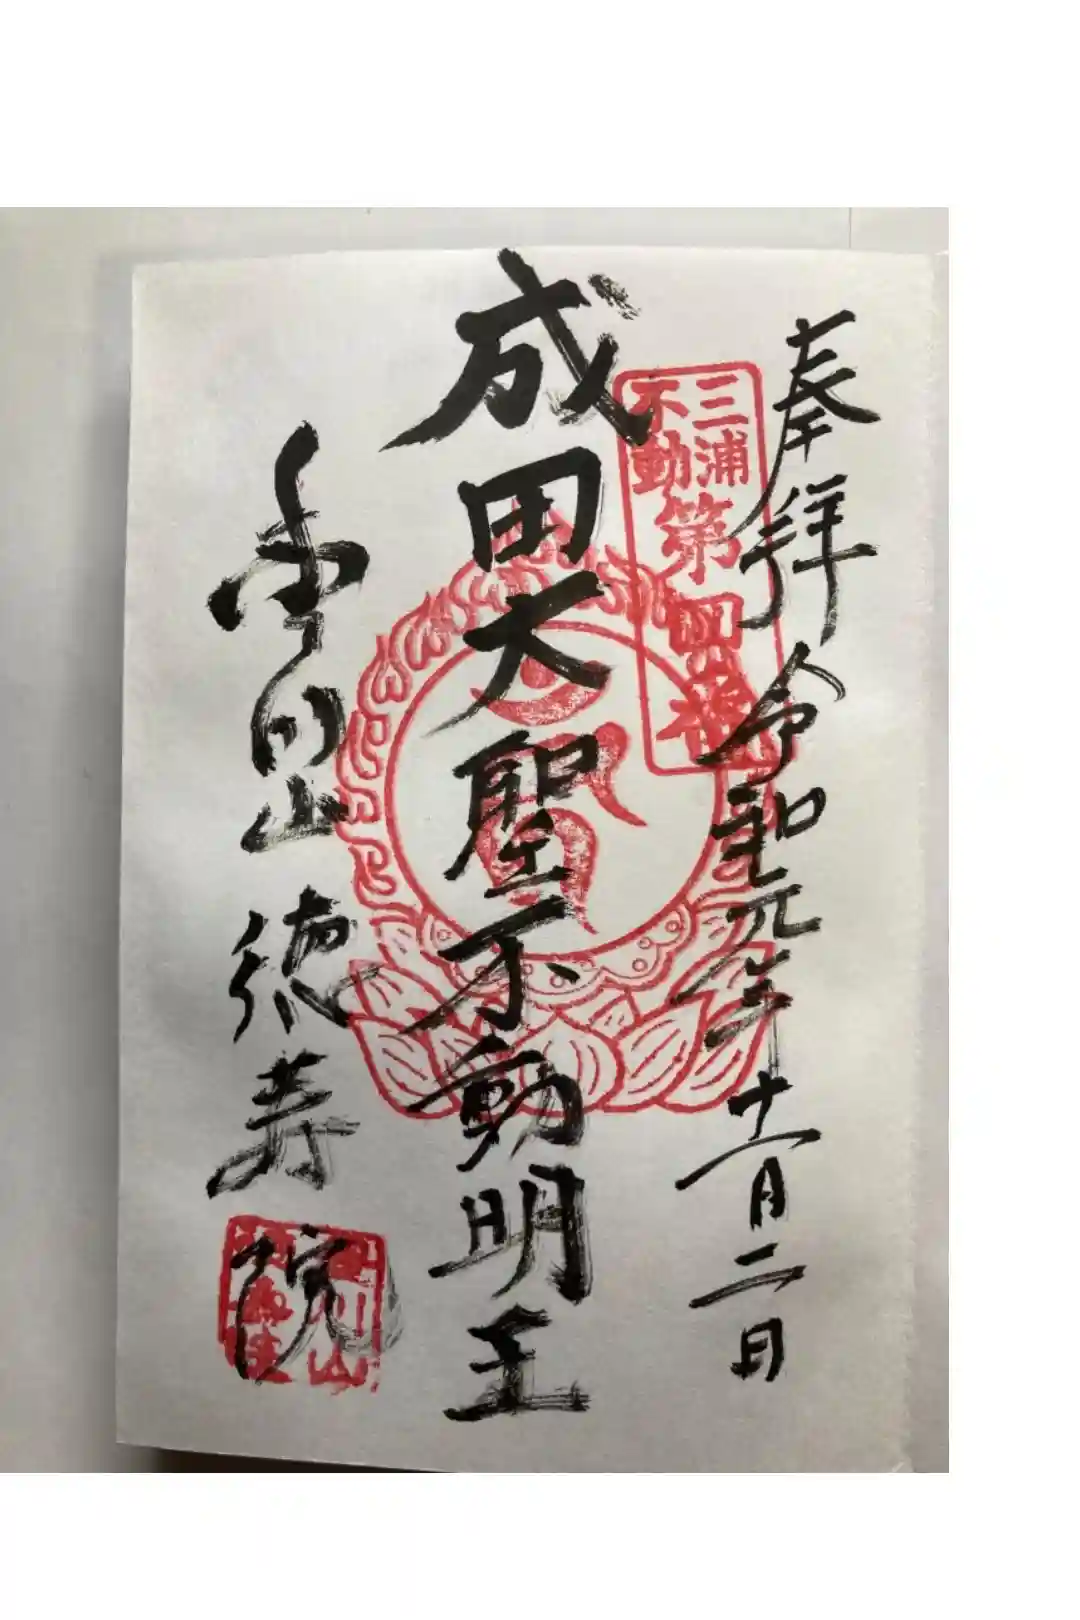 奉拝 令和元年十一月二日
三浦
不動
第四番
成田大聖不動明王
山 徳寿院